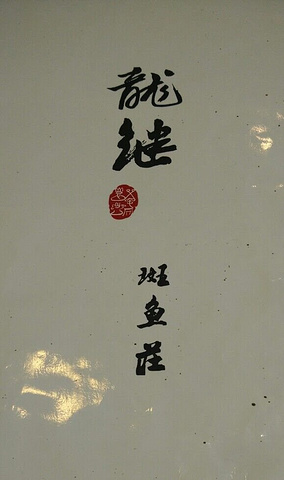 龍继
斑鱼莊